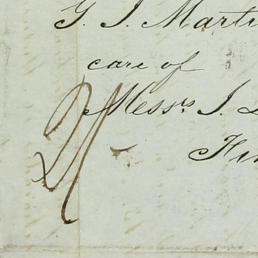 G. J. Marti
care of
Messrs J.